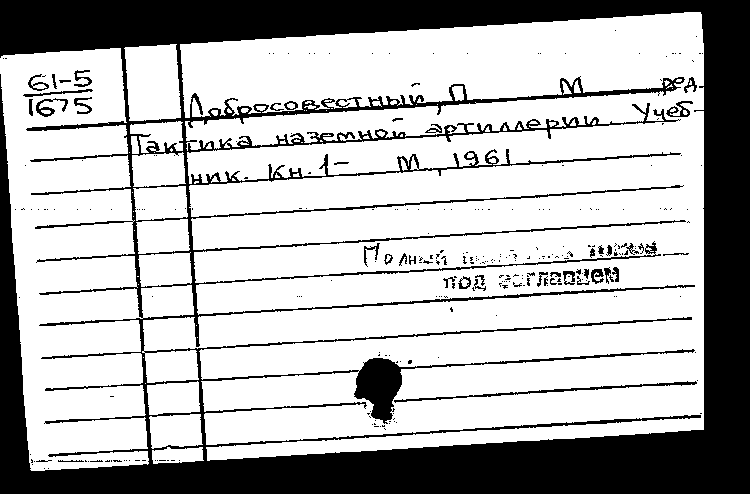 61-5
1675
Добросовестный, П М ред.
Тактика наземной артиллерии. Учеб-
ник. Кн. 1- М, 1961.
Полный томов
под заглавием